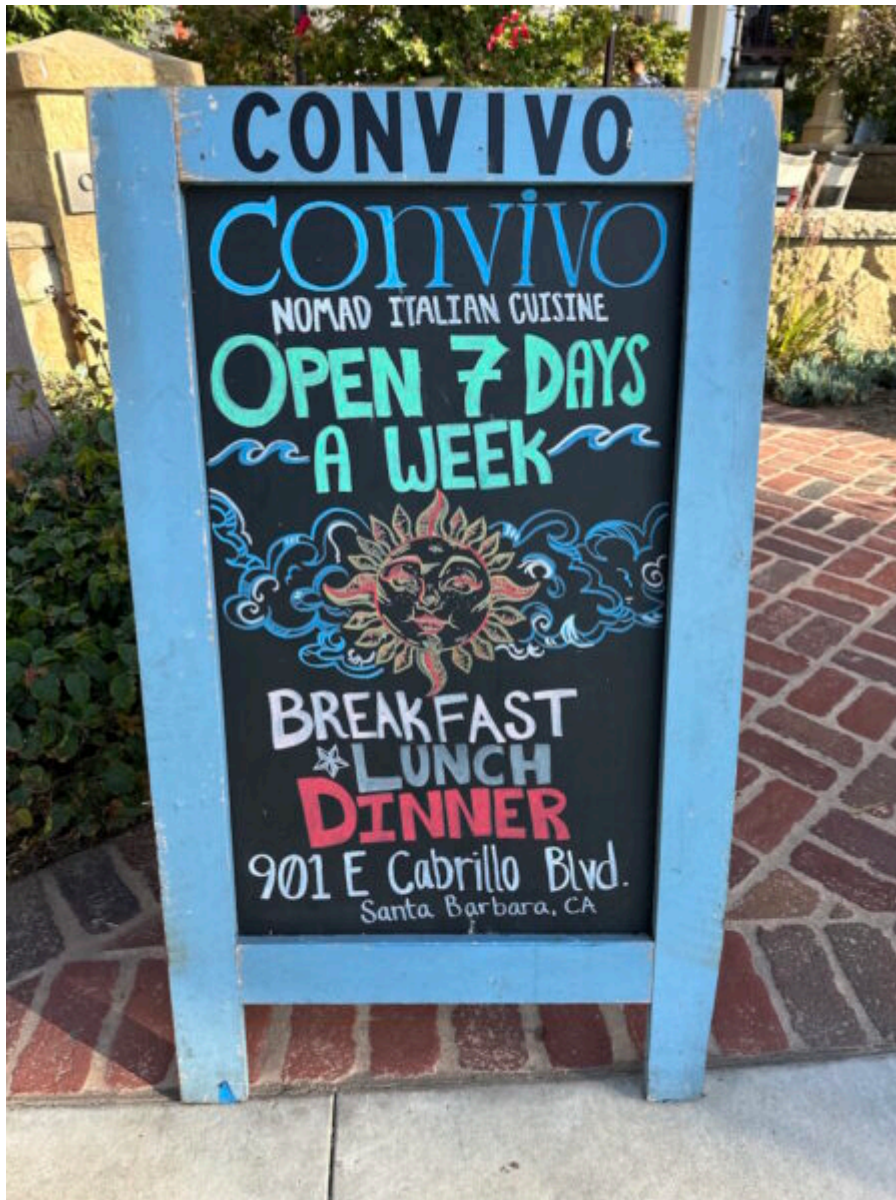 CONVIVO
Convivo
NOMAD ITALIAN CUISINE
OPEN 7 DAYS
A WEEK
BREAKFAST
LUNCH
DINNER
901 E Cabrillo Blvd.
Santa Barbara, CA